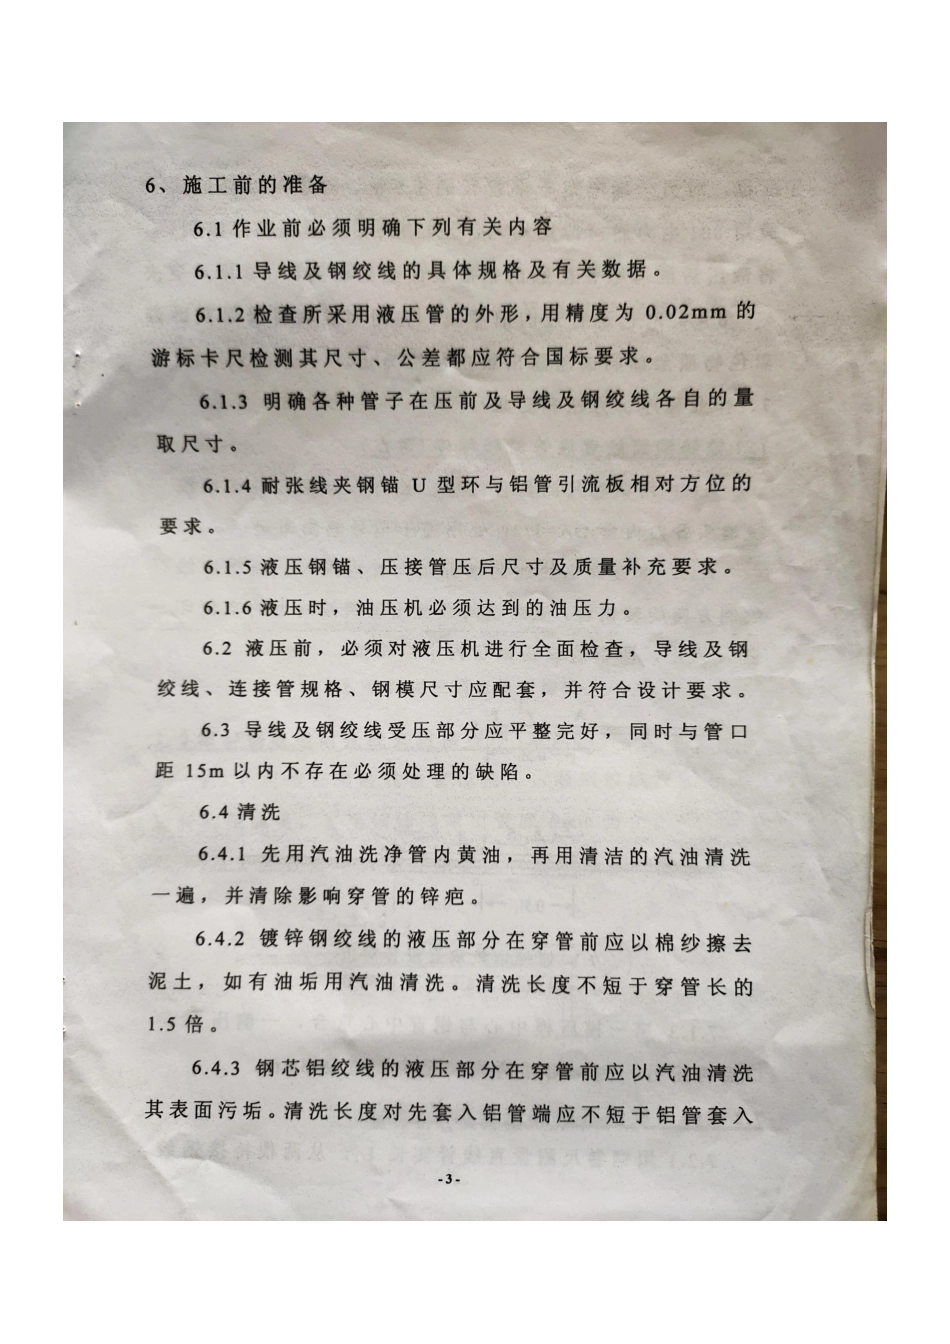 6、施工前的准备
6.1作业前必须明确下列有关内容
6.1.1导线及钢绞线的具体规格及有关数据。
6.1.2检查所采用液压管的外形，用精度为 0.02mm 的
游标卡尺检测其尺寸、公差都应符合国标要求。
6.1.3 明确各种管子在压前及导线及钢绞线各自的量
取尺寸。
6.1.4耐张线夹钢锚 U 型环与铝管引流板相对方位的
要求。
6.1.5液压钢锚、压接管压后尺寸及质量补充要求。
6.1.6液压时，油压机必须达到的油压力。
6.2 液压前，必须对液压机进行全面检查，导线及钢
绞线、连接管规格、钢模尺寸应配套，并符合设计要求。
6.3 导线及钢绞线受压部分应平整完好，同时与管口
距 15m 以内不存在必须处理的缺陷。
6.4清洗
6.4.1 先用汽油洗净管内黄油，再用清洁的汽油清洗
一遍，并清除影响穿管的锌疤。
6.4.2 镀锌钢绞线的液压部分在穿管前应以棉纱擦去
泥土，如有油垢用汽油清洗。清洗长度不短于穿管长的
1.5倍。
6.4.3 钢芯铝绞线的液压部分在穿管前应以汽油清洗
其表面污垢。清洗长度对先套入铝管端应不短于铝管套入
-3-